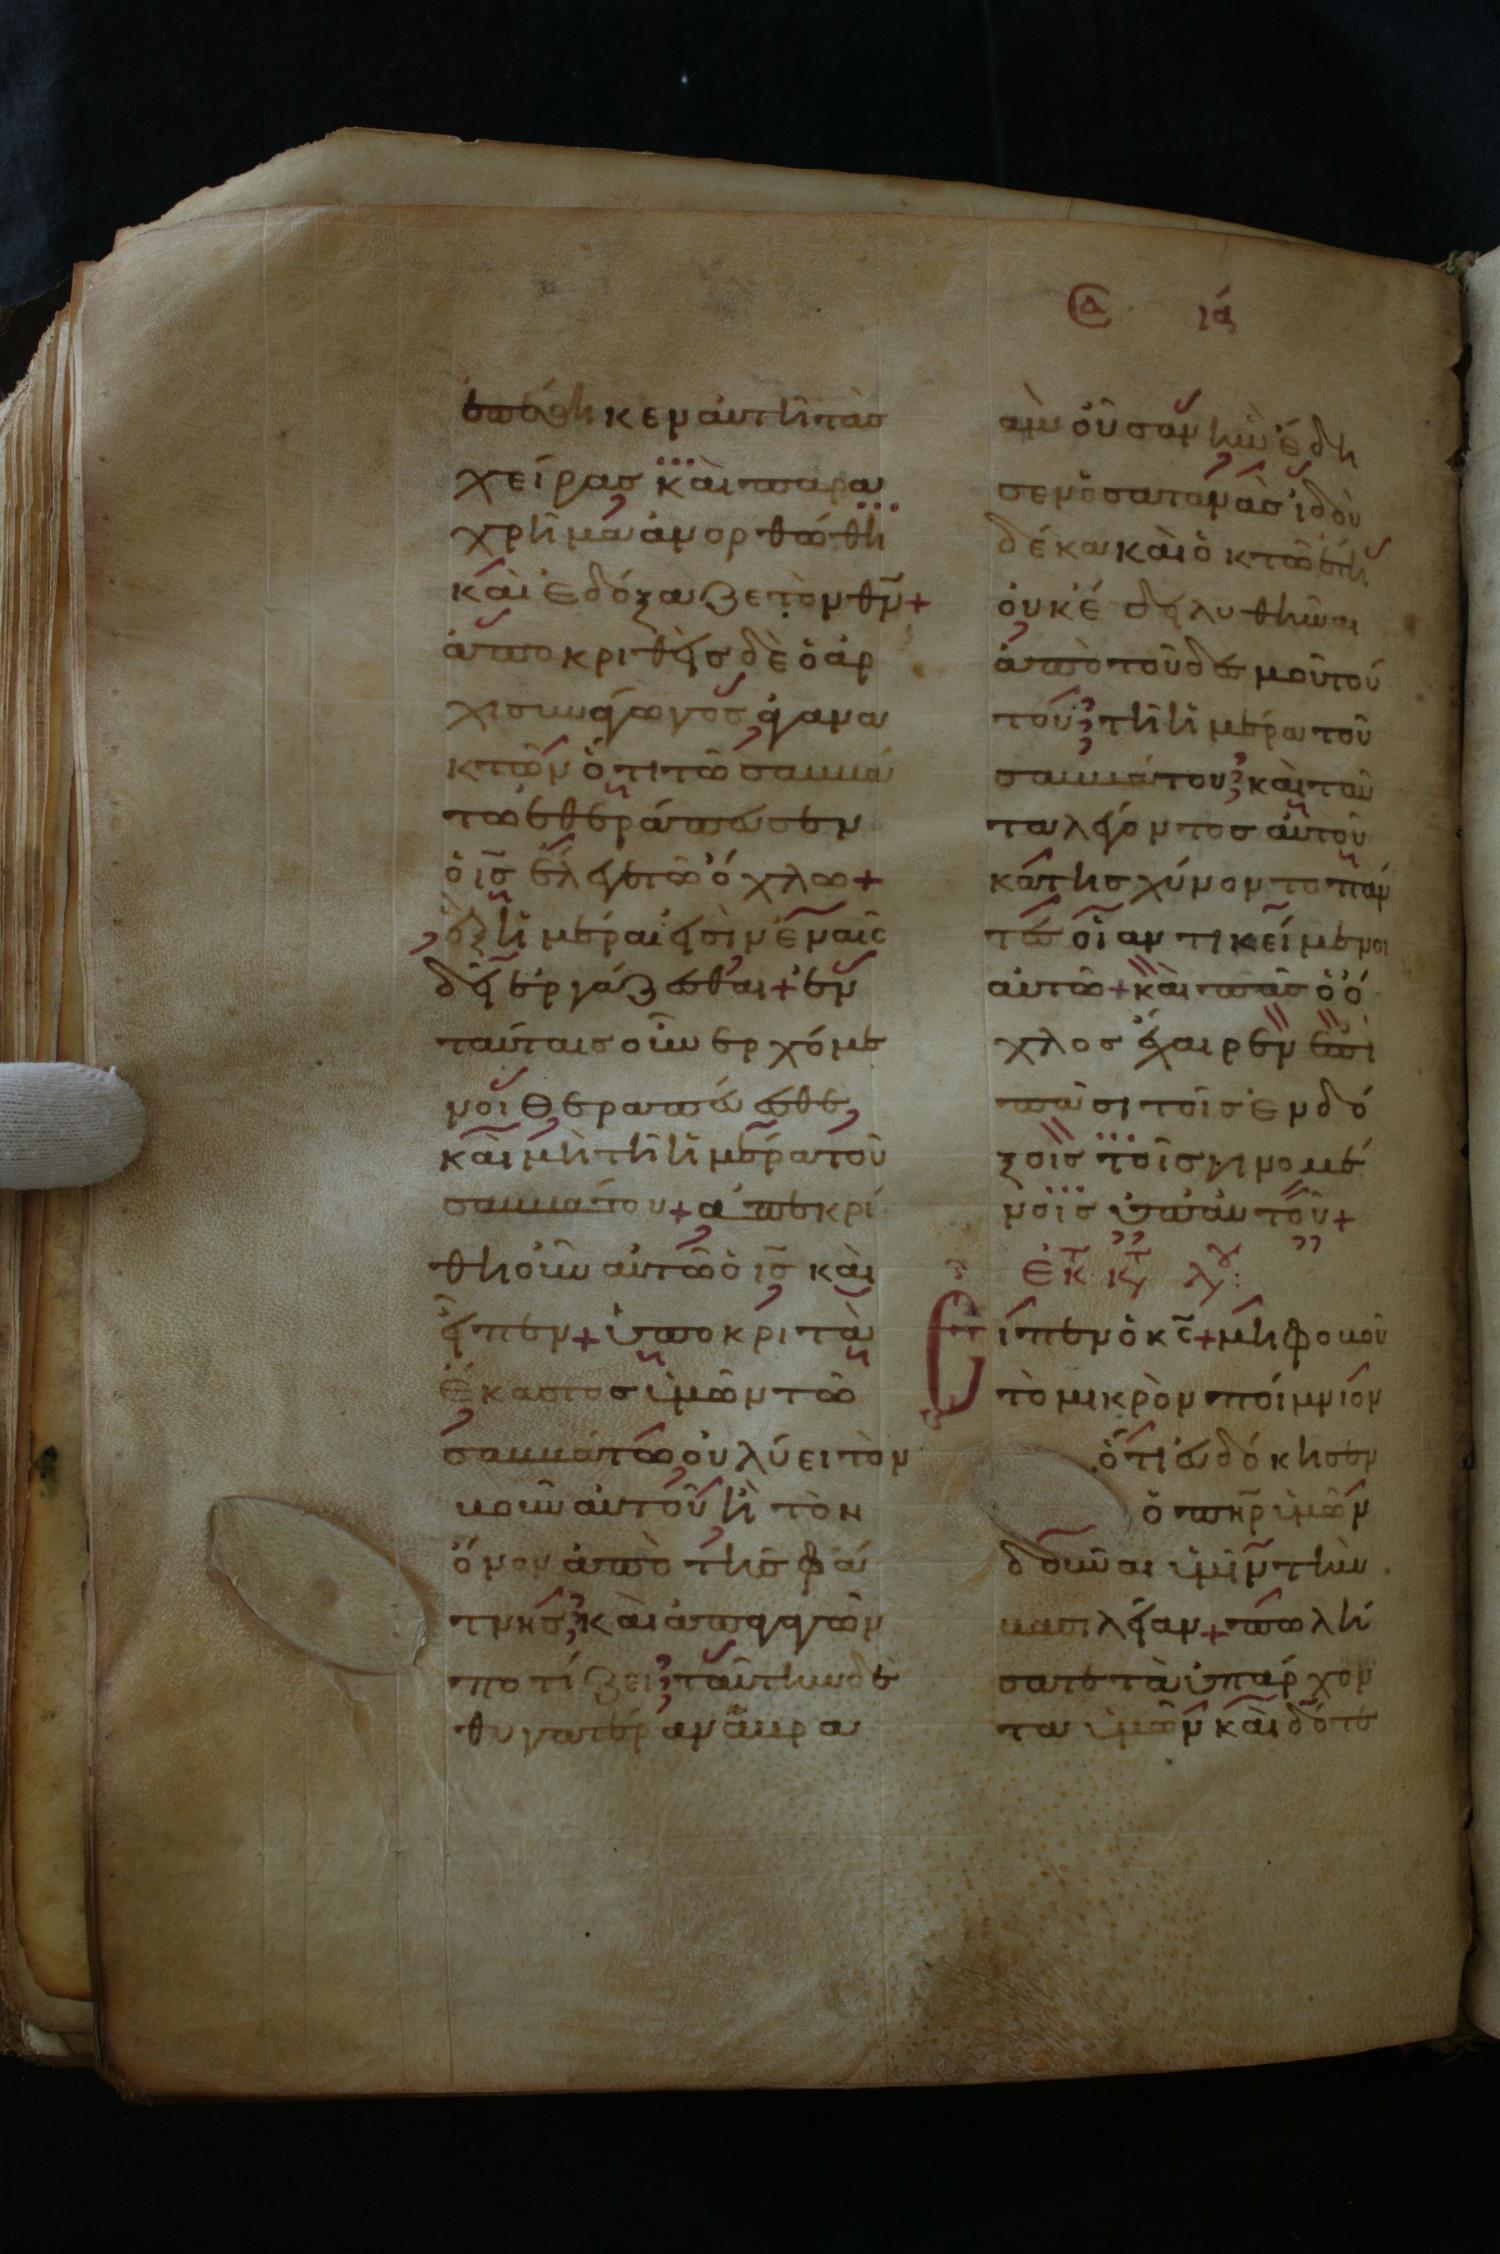 Ϲα ια
ἐπέθηκεν ἀυτῆ τὰσ
χείρασ καὶ παρα
χρῆμα ἀνορθώθη
καὶ ἐδόξαζε τὸν θν̃+
ἀποκριθεὶσ δὲ ὁ ἀρ
χισυνάγωγοσ, ἀγανα
κτῶν ὅτι τῶ σαββά
τω ἐθεράπευσεν
ὁ ισ̃ ἔλεγε τῶ ὄχλω+
ἓξ ἡμέραι εἰσὶν ἐν αἷσ
δεῖ ἐργάζεσθαι+ ἐν
ταύταισ οὖν ἐρχόμε
νοι θεραπεύεσθε,
καὶ μὴ τῆ ἡμέρα τοῦ
σαββάτου+ ἀπεκρί
θη οὖν αὐτῶ ὁ ισ̃ καὶ
εἶπεν+ ὑποκριτὰ
ἕκαστοσ ὑμῶν τῶ
σαββάτω οὐ λύει τὸν
βοῦν αὐτοῦ, ἢ τὸν
ὄνον ἀπὸ τῆσ φά
τνησ; καὶ ἀπαγαγὼν
ποτίζει; ταύτην δὲ
θυγατέραν ἄβρα
ὰμ οὖσαν, ἣν ἔδη
σεν ὁ σατανᾶσ ἰδοὺ
δέκα καὶ ὀκτῶ ἔτη
ὀυκ ἔδει λυθῆναι
ἀπὸ τοῦ δεσμοῦ τού
του; τῆ ἡμέρα τοῦ
σαββάτου; καὶ ταῦ
τα λέγοντοσ αὐτοῦ
κατησχύνοντο πάν
τεσ οἱ αντικείμενοι
αὐτῶ+ καὶ πᾶσ ὁ ὄ
χλοσ ἔχαιρεν ἐπὶ
πᾶσι τοῖσ ἐνδό
ξοισ τοῖσ γινομέ
νοισ ὑπ' ἀυτοῦ+
ἐκ τ κτ λγ:
Εἶπεν ὁ κσ̃+ μὴ φοβοῦ
τὸ μικρὸν ποίμνιον
ὅτι εὐδόκησεν
ὁ πηρ̃ ὑμῶν
δοῦναι ὑμῖν τὴν
βασιλείαν+ πωλή
σατε τὰ ὑπάρχον
τα ὑμῶν καὶ δότε